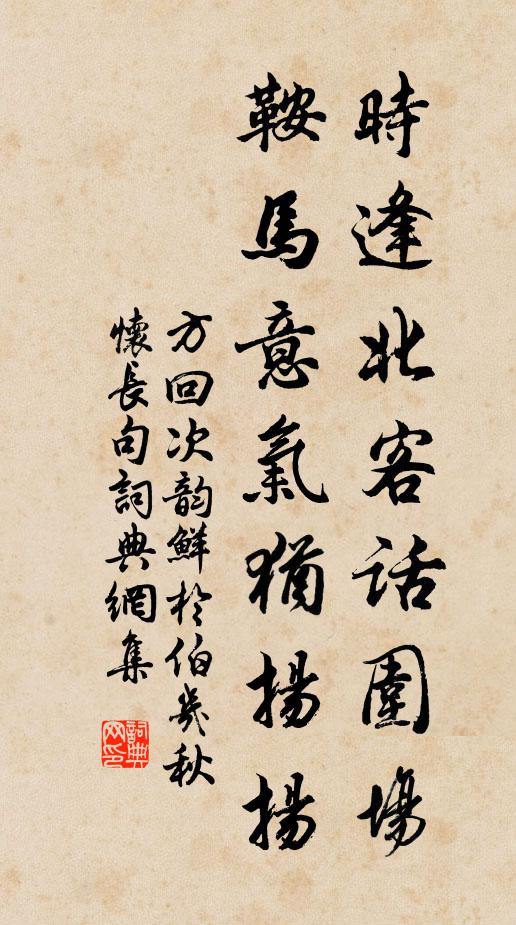 時逢北客話圍場
鞍馬意氣猶揚揚
方回次韵鮮於伯幾秋
懷長句詞典網集
詞典网印